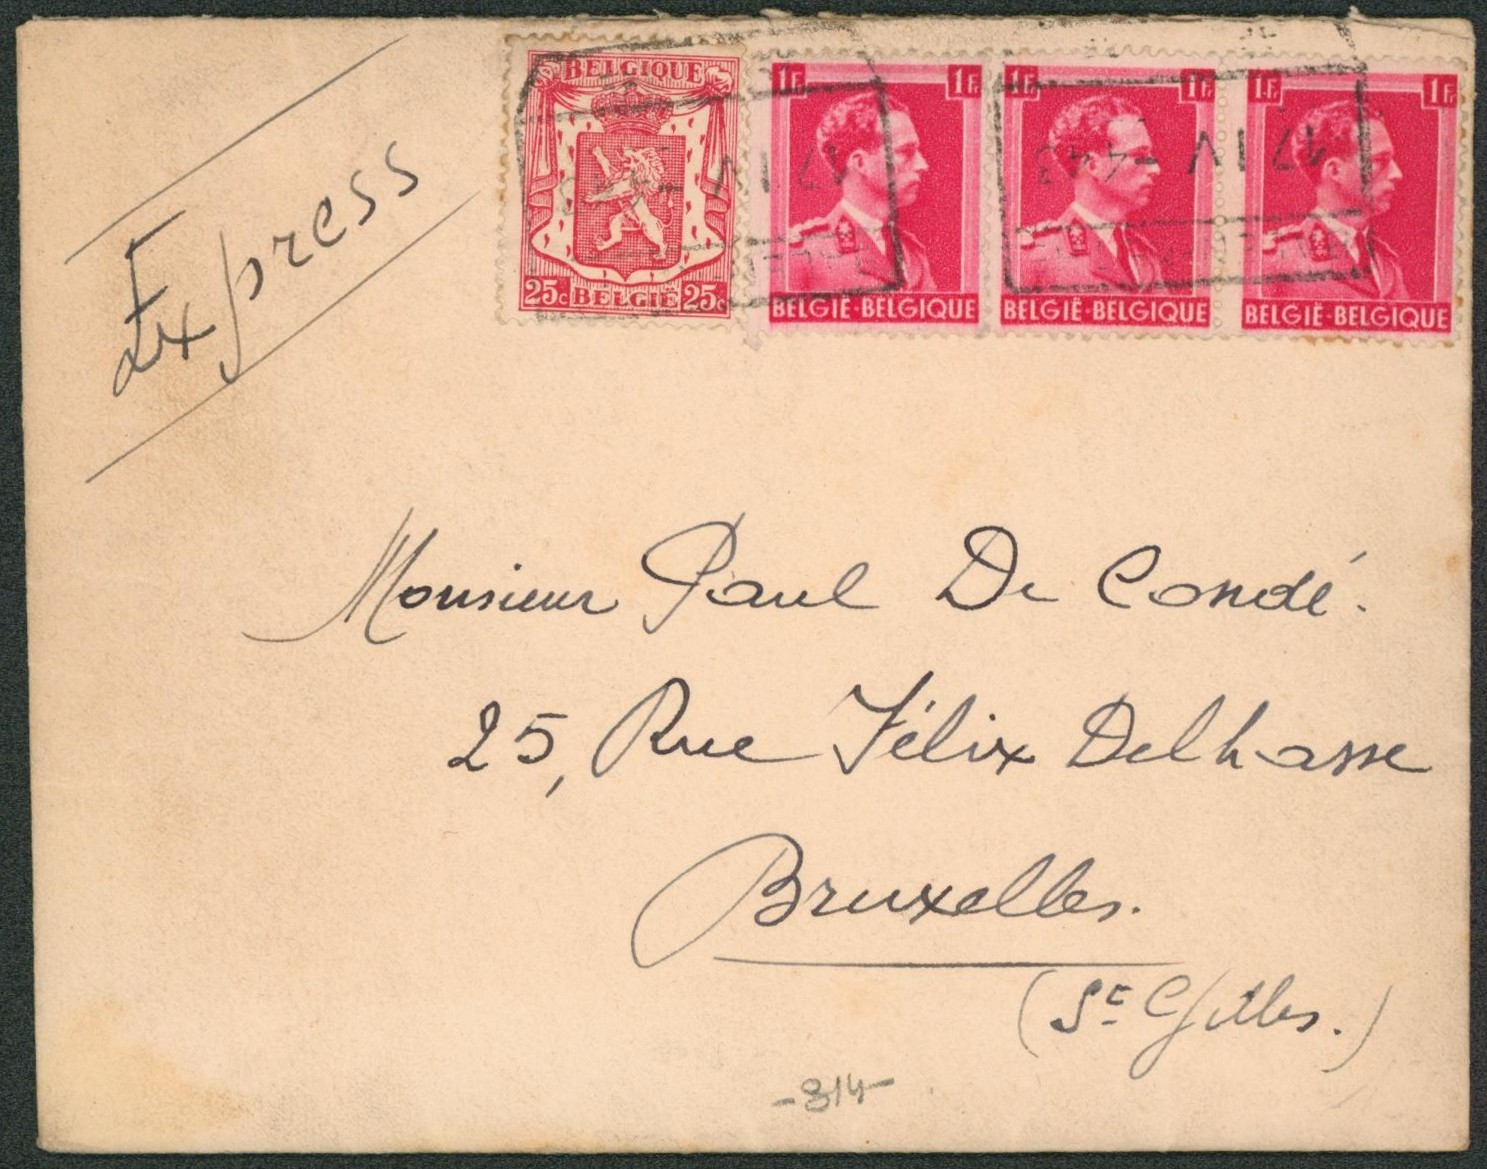 Express
BELGIQUE
25c BELGIË 25c
1Fr 1Fr
BELGIË-BELGIQUE
1Fr 1Fr
BELGIË-BELGIQUE
1Fr 1Fr
BELGIË-BELGIQUE
17 IV
17 IV
17 IV
Monsieur Paul De Condé.
25, Rue Félix Delhasse
Bruxelles.
(St Gilles.)
-314-